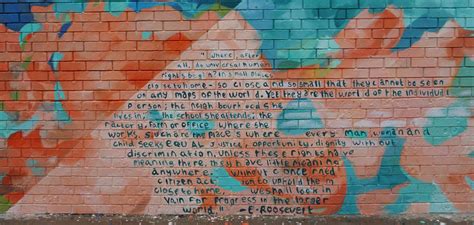 "Where, after
all, do universal human
rights begin? In small places,
close to home - so close and so small that they cannot be seen
on any maps of the world. Yet they are the world of the individual
person; the neighbourhood he
lives in; the school she attends; the
factory, farm or OFFICE where she
works. Such are the places where every man, woman and
child seeks EQUAL Justice, opportunity, dignity without
discrimination. Unless these rights have
meaning there, they have little meaning
anywhere. Without concerned
citizen action to uphold them
close to home, we shall look in
vain for progress in the larger
world" - E. Roosevelt